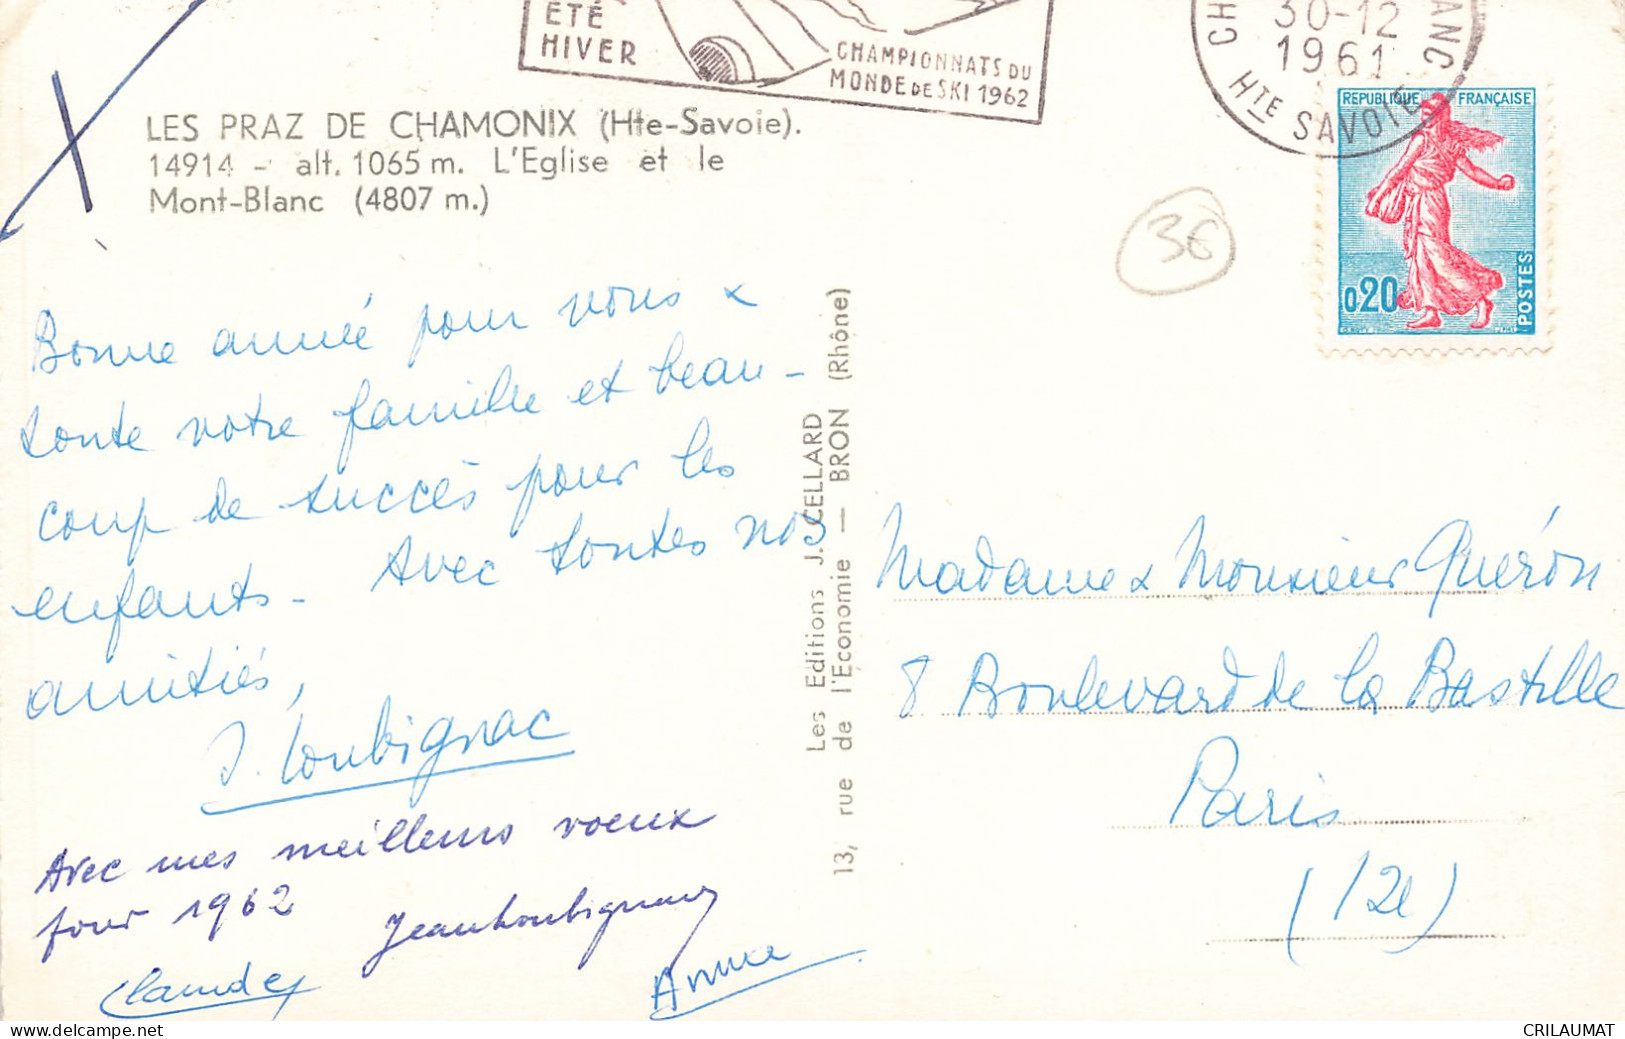 ÉTÉ
HIVER
CHAMPIONNATS DU
MONDE DE SKI 1962
30-12
1961
HTE SAVOIE
REPUBLIQUE FRANÇAISE
0,20
POSTES
LES PRAZ DE CHAMONIX (Hte-Savoie).
14914 - alt. 1065 m. L'Eglise et le
Mont-Blanc (4807 m.)
36
Bonne année pour vous &
toute votre famille et beau-
coup de succès pour les
enfants - Avec toutes nos
amitiés,
J. Loubignac
Avec mes meilleurs voeux
pour 1962 Jean Loubignac
Claude Annie
Les Editions J. CELLARD
13, rue de l'Économie — BRON (Rhône)
Madame & Monsieur Quéron
8 Boulevard de la Bastille
Paris
(12e)
delcampe.net
CRILAUMAT